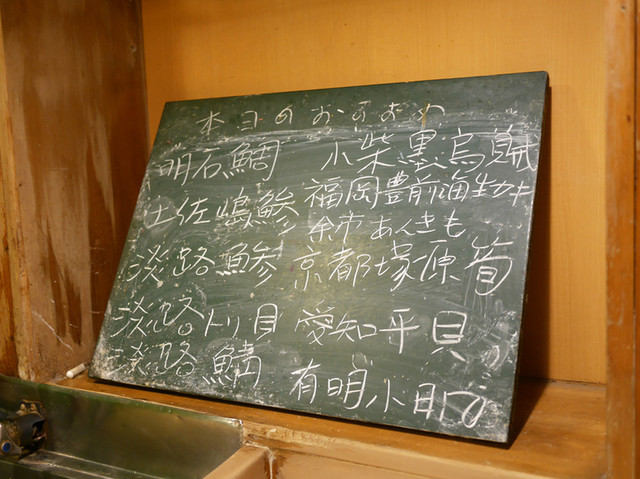 本日のおすすめ
明石鯛
土佐嶋鯵
淡路鯵
淡路トリ貝
淡路鯖
小柴墨烏賊
福岡豊前海生カキ
余市あんきも
京都塚原筍
愛知平貝
有明小肌